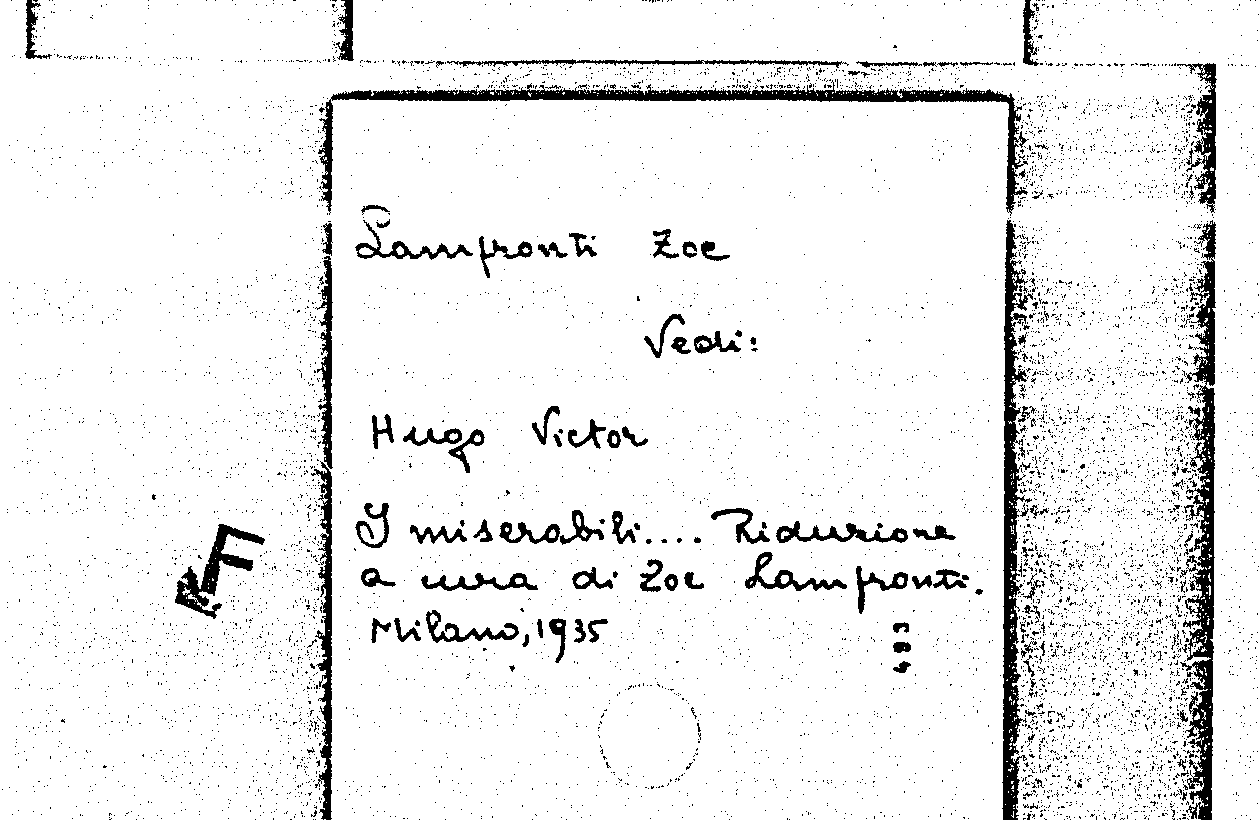 Lampronti Zoe
Vedi:
Hugo Victor
I miserabili.... Riduzione
a cura di Zoe Lampronti.
Milano, 1935
493
F